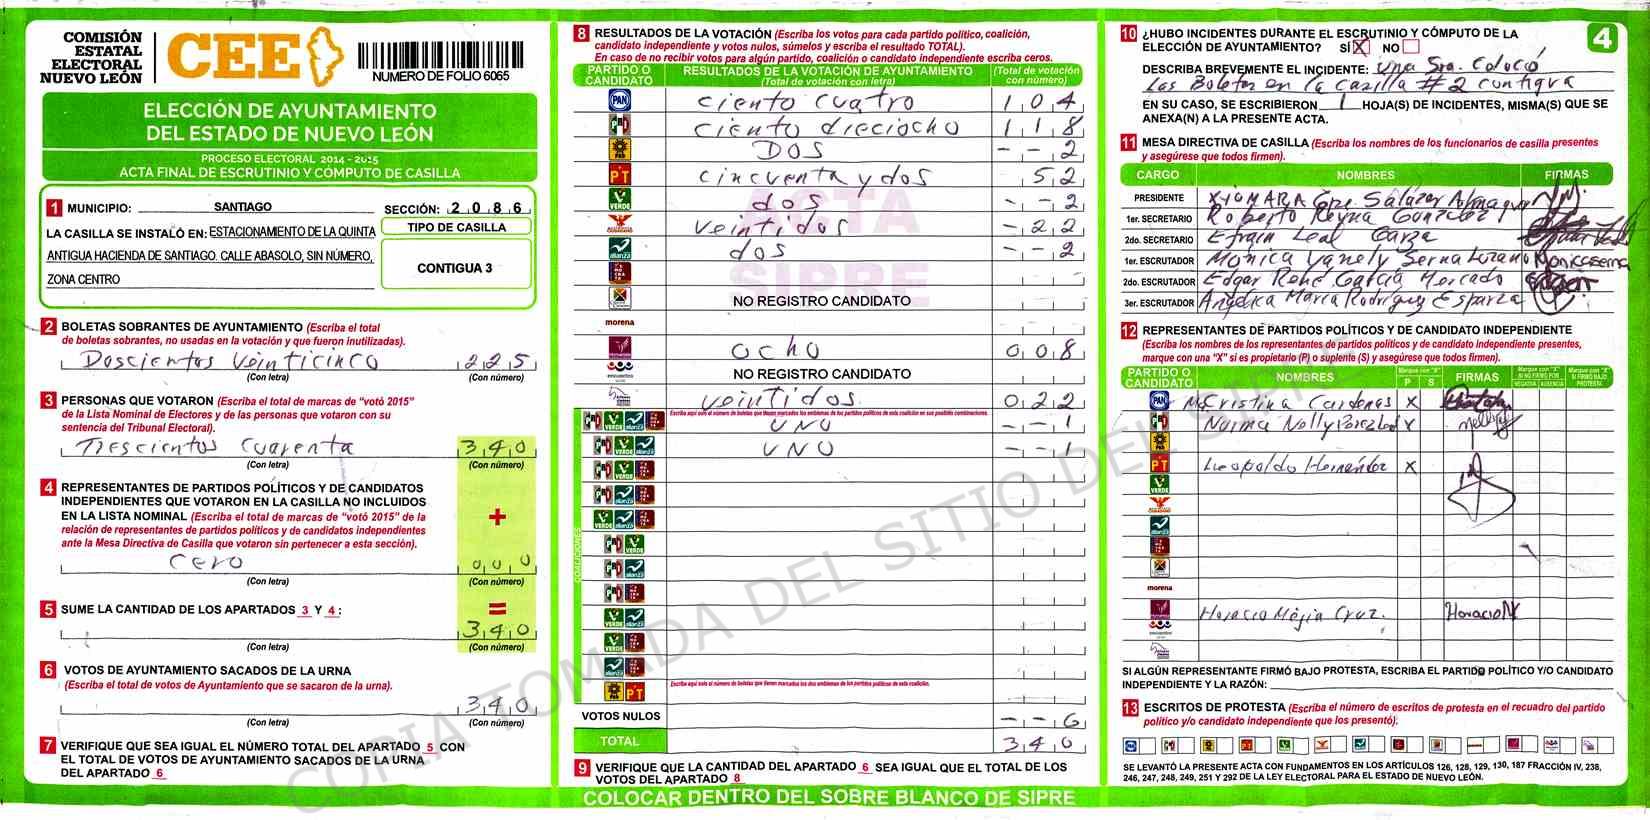 COMISIÓN
ESTATAL
ELECTORAL
NUEVO LEÓN
CEE
NUMERO DE FOLIO 6065
ELECCIÓN DE AYUNTAMIENTO
DEL ESTADO DE NUEVO LEÓN
PROCESO ELECTORAL 2014 - 2015
ACTA FINAL DE ESCRUTINIO Y CÓMPUTO DE CASILLA
1 MUNICIPIO: SANTIAGO SECCIÓN: 2 0 8 6
LA CASILLA SE INSTALÓ EN: ESTACIONAMIENTO DE LA QUINTA
ANTIGUA HACIENDA DE SANTIAGO. CALLE ABASOLO, SIN NÚMERO,
ZONA CENTRO
TIPO DE CASILLA
CONTIGUA 3
2 BOLETAS SOBRANTES DE AYUNTAMIENTO (Escriba el total
de boletas sobrantes, no usadas en la votación y que fueron inutilizadas).
Doscientos Veinticinco 2 2 5
(Con letra) (Con número)
3 PERSONAS QUE VOTARON (Escriba el total de marcas de "votó 2015"
de la Lista Nominal de Electores y de las personas que votaron con su
sentencia del Tribunal Electoral).
Trescientos Cuarenta 3 4 0
(Con letra) (Con número)
4 REPRESENTANTES DE PARTIDOS POLÍTICOS Y DE CANDIDATOS
INDEPENDIENTES QUE VOTARON EN LA CASILLA NO INCLUIDOS
EN LA LISTA NOMINAL (Escriba el total de marcas de "votó 2015" de la
relación de representantes de partidos políticos y de candidatos independientes
ante la Mesa Directiva de Casilla que votaron sin pertenecer a esta sección).
+
Cero 0 0 0
(Con letra) (Con número)
5 SUME LA CANTIDAD DE LOS APARTADOS 3 Y 4 :
=
3 4 0
(Con letra) (Con número)
6 VOTOS DE AYUNTAMIENTO SACADOS DE LA URNA
(Escriba el total de votos de Ayuntamiento que se sacaron de la urna).
3 4 0
(Con letra) (Con número)
7 VERIFIQUE QUE SEA IGUAL EL NÚMERO TOTAL DEL APARTADO 5 CON
EL TOTAL DE VOTOS DE AYUNTAMIENTO SACADOS DE LA URNA
DEL APARTADO 6
8 RESULTADOS DE LA VOTACIÓN (Escriba los votos para cada partido político, coalición,
candidato independiente y votos nulos, súmelos y escriba el resultado TOTAL).
En caso de no recibir votos para algún partido, coalición o candidato independiente escriba ceros.
PARTIDO O CANDIDATO
RESULTADOS DE LA VOTACIÓN DE AYUNTAMIENTO
(Total de votación con letra)
(Total de votación con número)
PAN ciento cuatro 1 0 4
PRD ciento dieciocho 1 1 8
DOS - - 2
PT cincuenta y dos 5 2
VERDE dos - - 2
veintidos - 2 2
alianza dos - - 2
ACTA
SIPRE
NO REGISTRO CANDIDATO
morena
ocho 0 0 8
NO REGISTRO CANDIDATO
veintidos 0 2 2
Escriba aquí solo el número de boletas que tienen marcados los emblemas de los partidos políticos de esta coalición en sus posibles combinaciones.
UNO - - 1
UNO - - 1
COALICIONES
Escriba aquí solo el número de boletas que tienen marcados los dos emblemas de los partidos políticos de esta coalición.
VOTOS NULOS - - 6
TOTAL 3 4 0
9 VERIFIQUE QUE LA CANTIDAD DEL APARTADO 6 SEA IGUAL QUE EL TOTAL DE LOS
VOTOS DEL APARTADO 8
COLOCAR DENTRO DEL SOBRE BLANCO DE SIPRE
COPIA TOMADA DEL SITIO DEL SIPRE
4
10 ¿HUBO INCIDENTES DURANTE EL ESCRUTINIO Y CÓMPUTO DE LA
ELECCIÓN DE AYUNTAMIENTO? SÍ X NO
DESCRIBA BREVEMENTE EL INCIDENTE: Una Sra. Coloco
Las Boletas en la Casilla # 2 contigua
EN SU CASO, SE ESCRIBIERON 1 HOJA(S) DE INCIDENTES, MISMA(S) QUE SE
ANEXA(N) A LA PRESENTE ACTA.
11 MESA DIRECTIVA DE CASILLA (Escriba los nombres de los funcionarios de casilla presentes
y asegúrese que todos firmen).
CARGO NOMBRES FIRMAS
PRESIDENTE XIOMARA Salazar Almaguer
1er. SECRETARIO Roberto Reyna Gonzalez
2do. SECRETARIO Efrain Leal Garza
1er. ESCRUTADOR Monica Yanely Serna Lozano Monicaserna
2do. ESCRUTADOR Edgar René García Mercado
3er. ESCRUTADOR Angelica Maria Rodriguez Esparza
12 REPRESENTANTES DE PARTIDOS POLÍTICOS Y DE CANDIDATO INDEPENDIENTE
(Escriba los nombres de los representantes de partidos políticos y de candidato independiente presentes,
marque con una "X" si es propietario (P) o suplente (S) y asegúrese que todos firmen).
PARTIDO O CANDIDATO NOMBRES Marque con "X" P S FIRMAS Marque con "X" SI NO FIRMÓ POR NEGATIVA AUSENCIA Marque con "X" SI FIRMÓ BAJO PROTESTA
PAN Ma Cristina Cardenas X
Norma Nelly X Nelly
PT Leopoldo Hernández X
VERDE
morena
Horacio Mejia Cruz. Horacio
SI ALGÚN REPRESENTANTE FIRMÓ BAJO PROTESTA, ESCRIBA EL PARTIDO POLÍTICO Y/O CANDIDATO
INDEPENDIENTE Y LA RAZÓN:
13 ESCRITOS DE PROTESTA (Escriba el número de escritos de protesta en el recuadro del partido
político y/o candidato independiente que los presentó).
SE LEVANTÓ LA PRESENTE ACTA CON FUNDAMENTOS EN LOS ARTÍCULOS 126, 128, 129, 130, 187 FRACCIÓN IV, 238,
246, 247, 248, 249, 251 Y 292 DE LA LEY ELECTORAL PARA EL ESTADO DE NUEVO LEÓN.